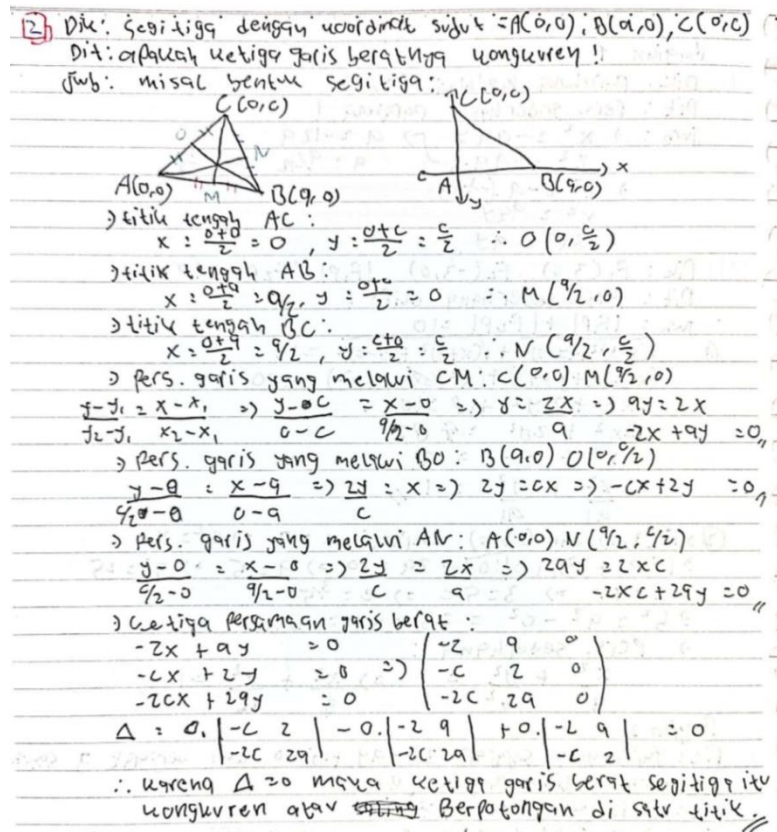 2) Dik: Segitiga dengan koordinat sudut = A(0,0), B(a,0), C(0,c)
Dit: apakah ketiga garis beratnya kongkuren!
Jwb: misal bentuk segitiga:
C(0,c)
C(0,c)
O
N
A(0,0)
M
B(a,0)
A
B(a,0)
x
y
⇒ titik tengah AC:
x = (0+0)/2 = 0, y = (0+c)/2 = c/2 ∴ O(0, c/2)
⇒ titik tengah AB:
x = (0+a)/2 = a/2, y = (0+0)/2 = 0 ∴ M(a/2, 0)
⇒ titik tengah BC:
x = (0+a)/2 = a/2, y = (c+0)/2 = c/2 ∴ N(a/2, c/2)
⇒ Pers. garis yang melalui CM: C(0,0) M(a/2,0)
(y-y₁)/(y₂-y₁) = (x-x₁)/(x₂-x₁) ⇒ (y-c)/(0-c) = (x-0)/(a/2-0) ⇒ y = 2x/a ⇒ ay = 2x
-2x + ay = 0,,
⇒ Pers. garis yang melalui BO: B(a,0) O(0,c/2)
(y-0)/(c/2-0) = (x-a)/(0-a) ⇒ 2y/c = x ⇒ 2y = cx ⇒ -cx + 2y = 0,,
⇒ Pers. garis yang melalui AN: A(0,0) N(a/2, c/2)
(y-0)/(c/2-0) = (x-0)/(a/2-0) ⇒ 2y/c = 2x/a ⇒ 2ay = 2xc
-2xc + 2ay = 0,,
⇒ ketiga Persamaan garis berat:
-2x + ay = 0 | -2 a 0 |
-cx + 2y = 0 ⇒ | -c 2 0 |
-2cx + 2ay = 0 | -2c 2a 0 |
Δ = 0. |-c 2; -2c 2a| - 0. |-2 a; -2c 2a| + 0. |-2 a; -c 2| = 0
∴ karena Δ = 0 maka ketiga garis berat segitiga itu
kongkuren atau Berpotongan di satu titik.,,